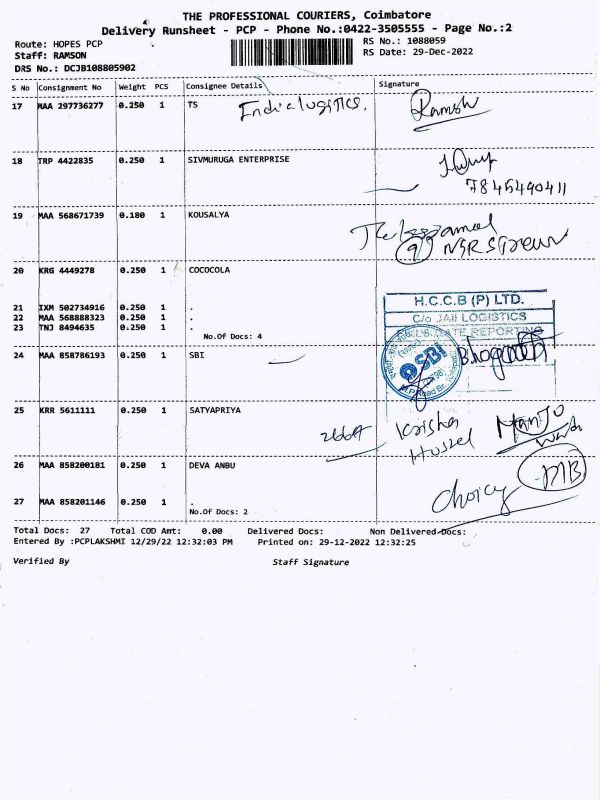 THE PROFESSIONAL COURIERS, Coimbatore
Delivery Runsheet - PCP - Phone No.:0422-3505555 - Page No.:2
Route: HOPES PCP
RS No.: 1088059
Staff: RAMSON
RS Date: 29-Dec-2022
DRS No.: DCJB108805902
S No Consignment No Weight PCS Consignee Details Signature
17 MAA 297736277 0.250 1 TS
18 TRP 4422835 0.250 1 SIVMURUGA ENTERPRISE
7845490411
19 MAA 568671739 0.180 1 KOUSALYA
20 KRG 4449278 0.250 1 COCOCOLA
H.C.C.B (P) LTD.
21 IXM 502734916 0.250 1 .
C/o JAII LOGISTICS
22 MAA 568888323 0.250 1 .
23 TNJ 8494635 0.250 1 .
No.Of Docs: 4
24 MAA 858786193 0.250 1 SBI
SBI
25 KRR 5611111 0.250 1 SATYAPRIYA
26 MAA 858200181 0.250 1 DEVA ANBU
27 MAA 858201146 0.250 1 .
No.Of Docs: 2
Total Docs: 27 Total COD Amt: 0.00 Delivered Docs: Non Delivered Docs:
Entered By :PCPLAKSHMI 12/29/22 12:32:03 PM Printed on: 29-12-2022 12:32:25
Verified By Staff Signature